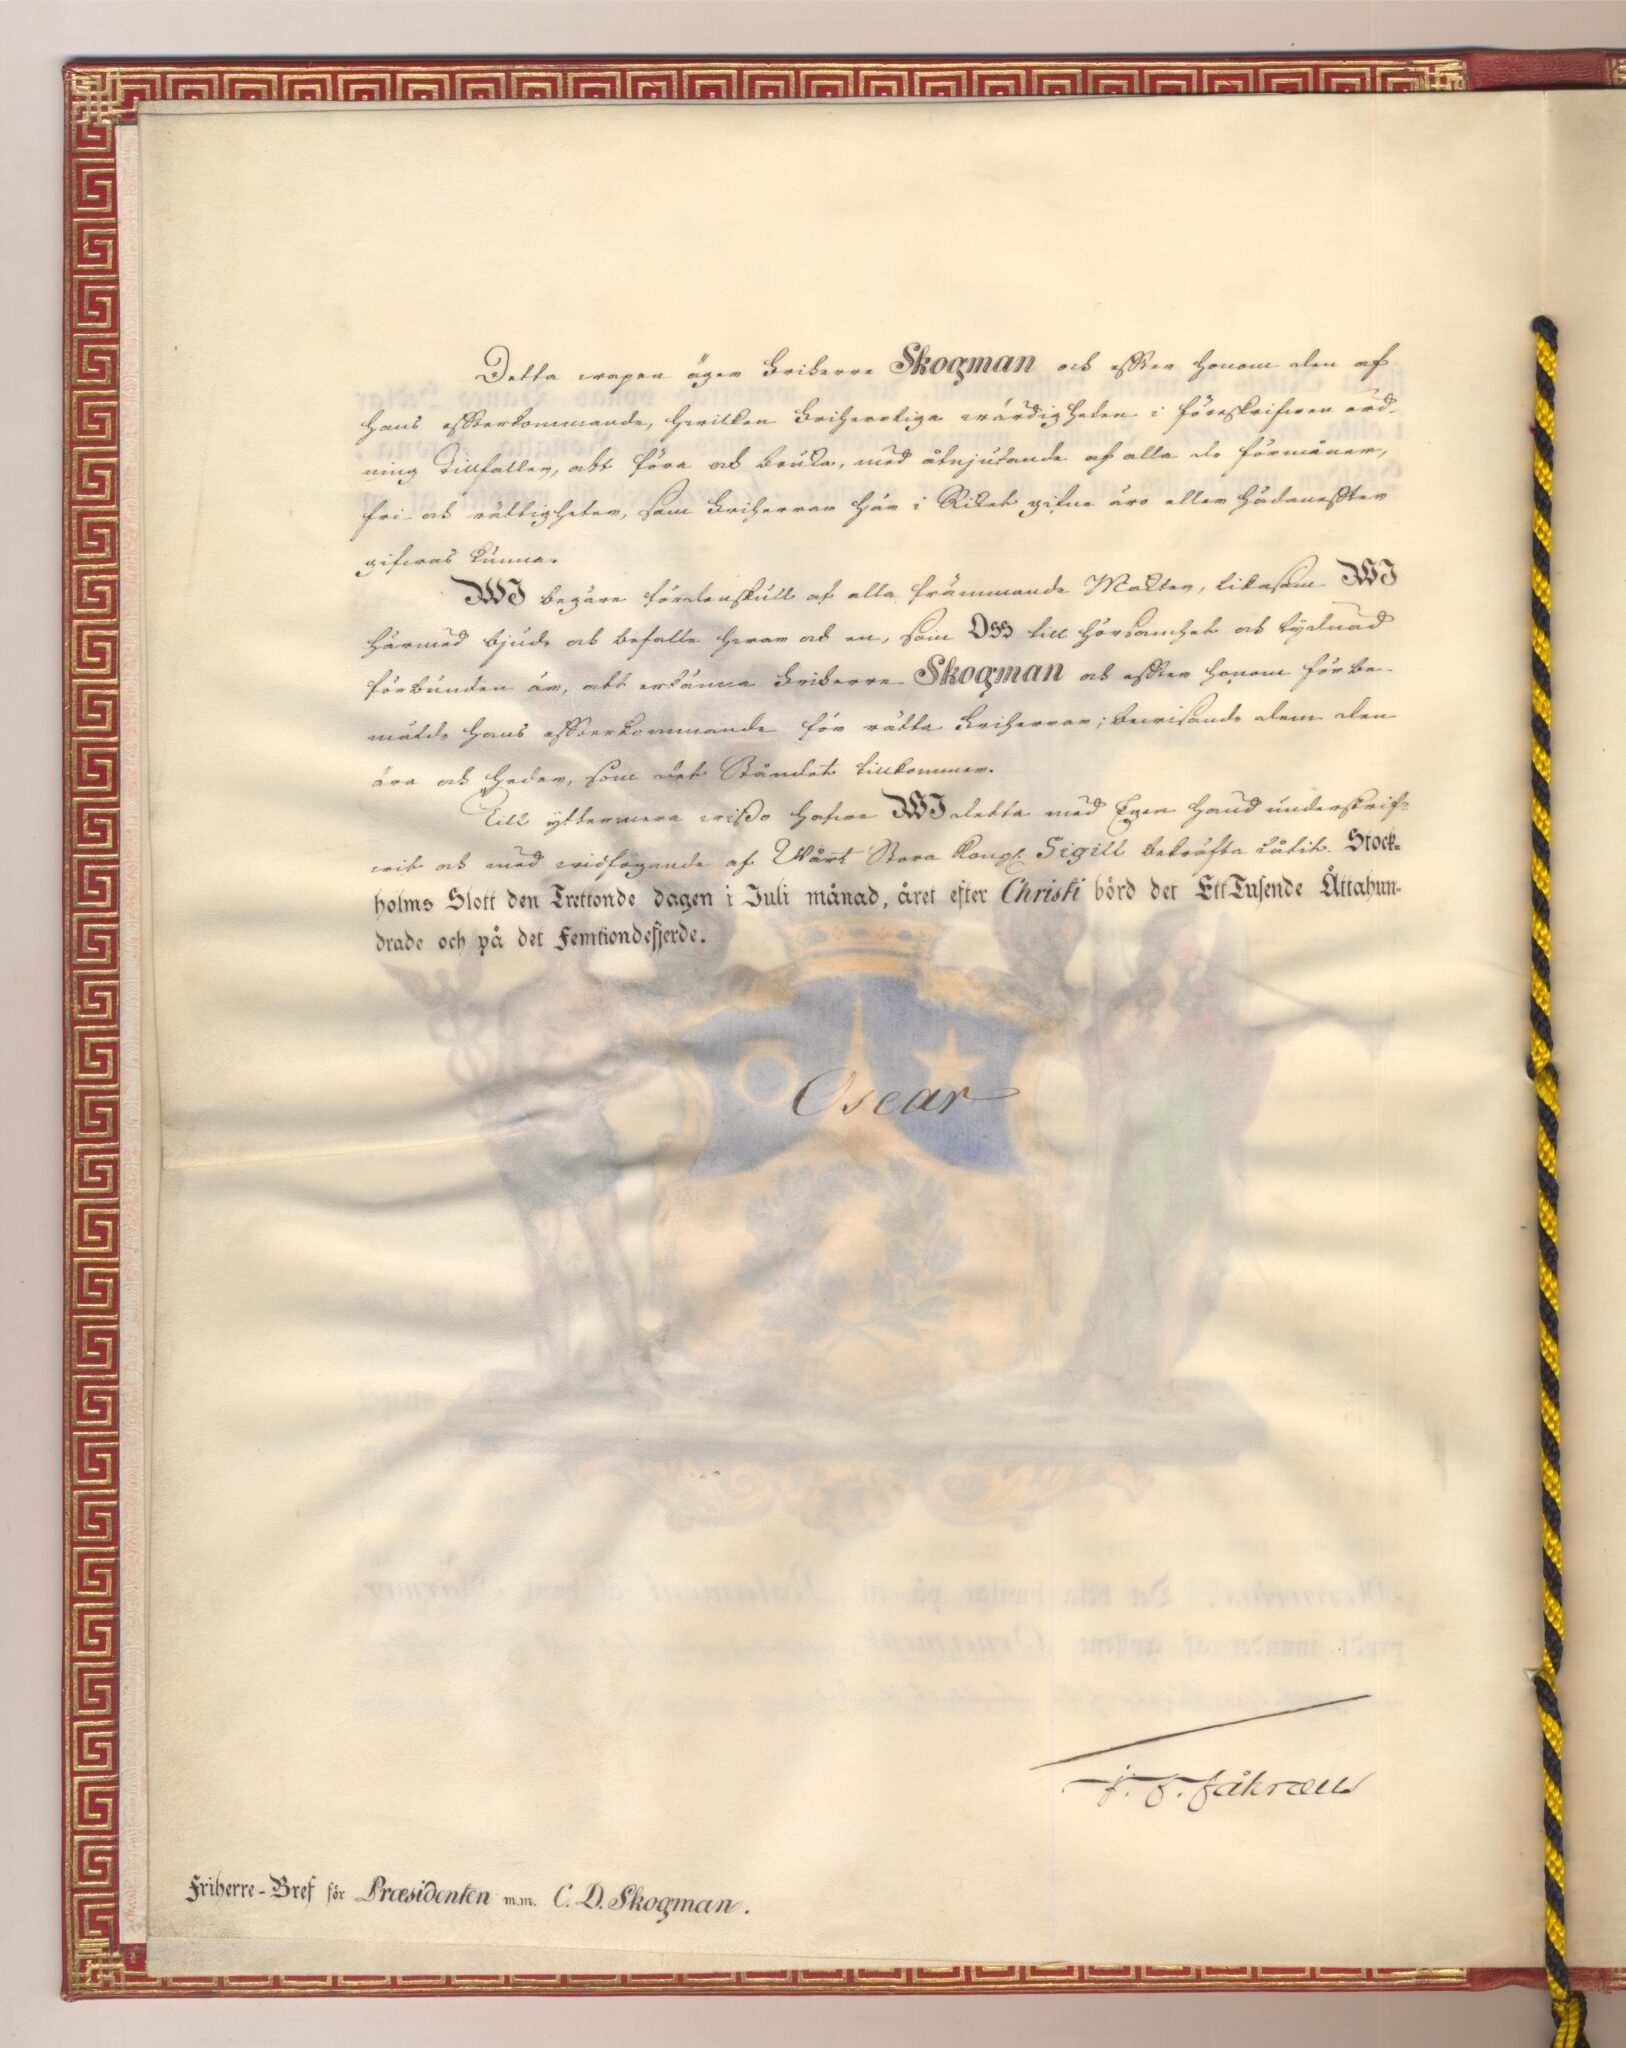 Detta wapen äger Friherre Skogman och efter honom den af
hans efterkommande, hwilken Friherrliga wärdigheten i föreskrifwen ord-
ning tillfaller, att föra och bruka, med åtnjutande af alla de förmåner,
fri- och rättigheter, som Friherrar här i Riket gifne äro eller hädanefter
gifwas kunna.
WI begäre fördenskull af alla främmande Makter, likasom WI
härmed bjude och befalle hwar och en, som Oss till hörsamhet och lydnad
förbunden är, att erkänna Friherre Skogman och efter honom förbe-
mälde hans efterkommande för rätta Friherrar; bewisande dem den
ära och heder, som det Ståndet tillkommer.
Till yttermera wisso hafwe WI detta med Egen Hand underskrif-
wit och med widfogande af Wårt Stora Kongl. Sigill bekräfta låtit. Stock-
holms Slott den Trettonde dagen i Juli månad, året efter Christi börd det Ett Tusende Åttahun-
drade och på det Femtiondefjerde.
Oscar
F. F. Fåhræus
Friherre-Bref för Præsidenten m.m. C. D. Skogman.